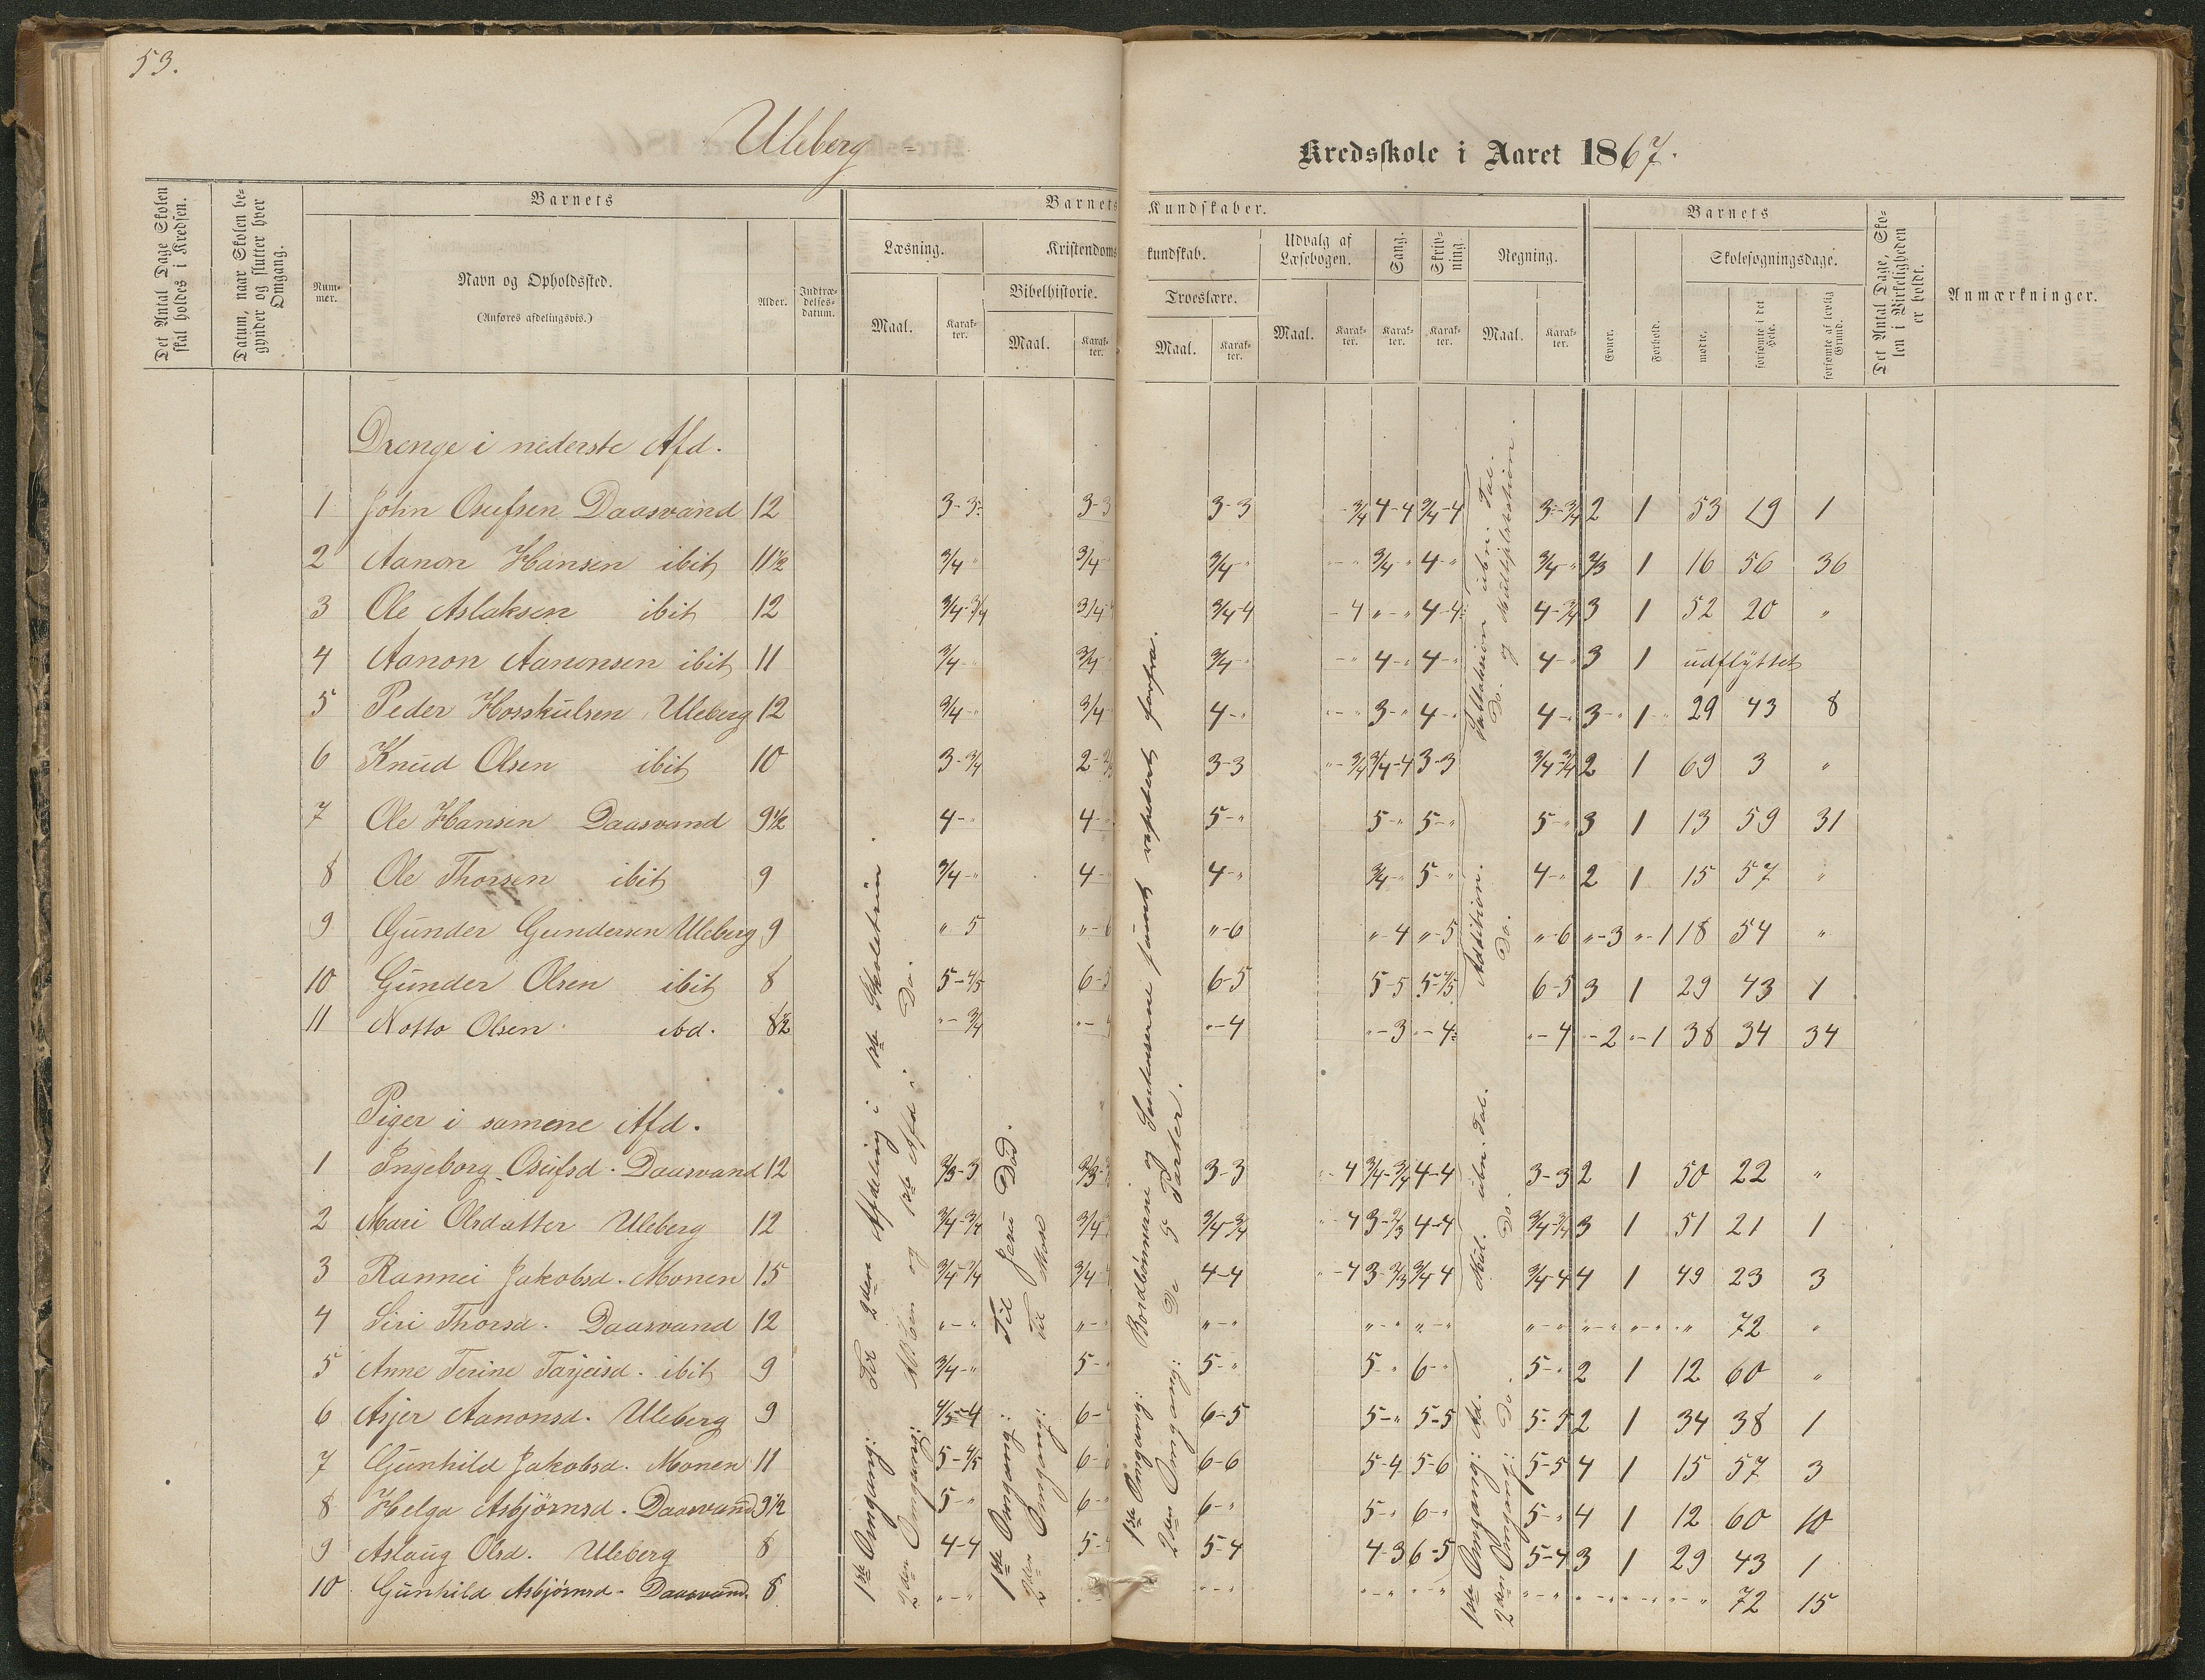 53.
Uleberg
Kredsskole i Aaret 1867.
Det Antal Dage Skolen skal holdes i Kredsen.
Datum, naar Skolen begynder og slutter hver Omgang.
Barnets
Nummer.
Navn og Opholdssted.
(Anføres afdelingsvis.)
Alder.
Indtrædelsesdatum.
Barnets Kundskaber.
Læsning.
Maal.
Karakter.
Kristendomskundskab.
Bibelhistorie.
Maal.
Karakter.
Troeslære.
Maal.
Karakter.
Udvalg af Læsebogen.
Maal.
Karakter.
Sang.
Karakter.
Skrivning.
Karakter.
Regning.
Maal.
Karakter.
Barnets
Evner.
Forhold.
Skolesøgningsdage.
mødte.
forsømte i det Hele.
forsømte af lovlig Grund.
Det Antal Dage, Skolen i Virkeligheden er holdt.
Anmærkninger.
Drenge i nederste Afd.
1 John Osufsen Daasvand 12 3-3 3-3 3-3 -3/4 4-4 3/4-4 3-3/4 2 1 53 19 1
2 Aanon Hansen ibit 11½ 3/4-" 3/4- 3/4-" -" 3/4-" 4-" 3/4-" 2/3 1 16 56 36
3 Ole Aslaksen ibit 12 3/4-3/4 3/4- 3/4-4 -4 "-" 4-4 4-3/4 3 1 52 20 "
4 Aanon Aanonsen ibit 11 3/4-" 3/4- 3/4-" -" 4-" 4-" 4-" 3 1 udflyttet
5 Peder Hosskulsen Uleberg 12 3/4-" 3/4- 4-" -" 3-" 4-" 4-" 3-" 1-" 29 43 8
6 Knud Olsen ibit 10 3-3/4 2- 3-3 "-3/4 3/4-4 3-3 3/4-3/4 2 1 69 3 "
7 Ole Hansen Daasvand 9½ 4-" 4- 5-" 5-" 5-" 5-" 3 1 13 59 31
8 Ole Thorsen ibit 9 3/4-" 4- 4-" 3/4-" 5-" 4-" 2 1 15 57 "
9 Gunder Gundersen Uleberg 9 "-5 "-6 "-6 "-4 "-5 "-6 "-3 "-1 18 54 "
10 Gunder Olsen ibit 8 5-4/5 6-5 6-5 5-5 5-4/5 6-5 3 1 29 43 1
11 Notto Olsen ibd. 8½ "-3/4 "-4 "-4 "-3 "-4 "-4 -2 "-1 38 34 34
Piger i samme Afd.
1 Ingeborg Osufsd. Daasvand 12 2/3-3 2/3- 3-3 "-4 3/4-3/4 4-4 3-3 2 1 50 22 "
2 Mari Olsdatter Uleberg 12 3/4-3/4 3/4- 3/4-3/4 "-4 3-2/3 4-4 3/4-3/4 3 1 51 21 1
3 Rannei Jakobsd. Monen 15 3/4-3/4 3/4- 4-4 "-4 3-2/3 3/4-4 3/4-4 4 1 49 23 3
4 Siri Thorsd. Daasvand 12 "-" "- "-" "-" "-" "-" "-" "-" " 72 "
5 Anne Terine Tarjeisd. ibit 9 3/4-" 5- 5-" 5-" 6-" 5-" 2 1 12 60 "
6 Asjer Aanonsd. Uleberg 9 4/5-4 6- 6-5 5-" 5-5 5-5 2 1 34 38 1
7 Gunhild Jakobsd. Monen 11 5-4/5 6- 6-6 5-4 5-6 5-5 4 1 15 57 3
8 Helga Asbjörnsd. Daasvand 9½ 5-" 6- 6-" 5-" 6-" 5-" 4 1 12 60 10
9 Aslaug Olsd. Uleberg 8 4-4 5- 5-4 4-3 6-5 5-4 3 1 29 43 1
10 Gunhild Asbjörnsd. Daasvand. 8 "-" "-" "-" "-" "-" "-" "-" " 72 15
1ste Omgang: Til 2den Afdeling i 1ste Skoletrin.
2den Omgang: og 1ste Afd i Do.
1ste Omgang: Til Jesu Død.
2den Omgang: Til Mose
1ste Omgang: Bordbønnerne og samt repetert forfra.
2den Omgang: De 5 Parter.
1ste Omgang: Ad. Mul. ubn. Tal. Addition. Subtraksion ubn. Tal.
2den Omgang: Do. Do. Do. Do. og Multiplikation.